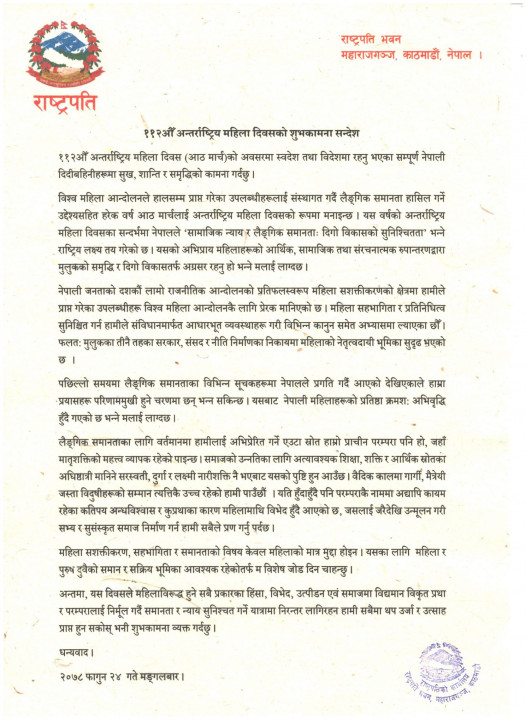 राष्ट्रपति भवन
महाराजगञ्ज, काठमाडौं, नेपाल ।
राष्ट्रपति
११२औँ अन्तर्राष्ट्रिय महिला दिवसको शुभकामना सन्देश
११२औँ अन्तर्राष्ट्रिय महिला दिवस (आठ मार्च)को अवसरमा स्वदेश तथा विदेशमा रहनु भएका सम्पूर्ण नेपाली
दिदीबहिनीहरूमा सुख, शान्ति र समृद्धिको कामना गर्दछु ।
विश्व महिला आन्दोलनले हालसम्म प्राप्त गरेका उपलब्धीहरूलाई संस्थागत गर्दै लैङ्गिक समानता हासिल गर्ने
उद्देश्यसहित हरेक वर्ष आठ मार्चलाई अन्तर्राष्ट्रिय महिला दिवसको रूपमा मनाइन्छ । यस वर्षको अन्तर्राष्ट्रिय
महिला दिवसका सन्दर्भमा नेपालले 'सामाजिक न्याय र लैङ्गिक समानताः दिगो विकासको सुनिश्चितता' भन्ने
राष्ट्रिय लक्ष्य तय गरेको छ । यसको अभिप्राय महिलाहरूको आर्थिक, सामाजिक तथा संरचनात्मक रुपान्तरणद्वारा
मुलुकको समृद्धि र दिगो विकासतर्फ अग्रसर रहनु हो भन्ने मलाई लाग्दछ ।
नेपाली जनताको दशकौं लामो राजनीतिक आन्दोलनको प्रतिफलस्वरूप महिला सशक्तीकरणको क्षेत्रमा हामीले
प्राप्त गरेका उपलब्धीहरू विश्व महिला आन्दोलनकै लागि प्रेरक मानिएको छ । महिला सहभागिता र प्रतिनिधित्व
सुनिश्चित गर्न हामीले संविधानमार्फत आधारभूत व्यवस्थाहरू गरी विभिन्न कानुन समेत अभ्यासमा ल्याएका छौँ ।
फलतः मुलुकका तीनै तहका सरकार, संसद र नीति निर्माणका निकायमा महिलाको नेतृत्वदायी भूमिका सुदृढ भएको
छ ।
पछिल्लो समयमा लैङ्गिक समानताका विभिन्न सूचकहरूमा नेपालले प्रगति गर्दै आएको देखिएकाले हाम्रा
प्रयासहरू परिणाममुखी हुने चरणमा छन् भन्न सकिन्छ । यसबाट नेपाली महिलाहरूको प्रतिष्ठा क्रमशः अभिवृद्धि
हुँदै गएको छ भन्ने मलाई लाग्दछ ।
लैङ्गिक समानताका लागि वर्तमानमा हामीलाई अभिप्रेरित गर्ने एउटा स्रोत हाम्रो प्राचीन परम्परा पनि हो, जहाँ
मातृशक्तिको महत्त्व व्यापक रहेको पाइन्छ । समाजको उन्नतिका लागि अत्यावश्यक शिक्षा, शक्ति र आर्थिक स्रोतका
अधिष्ठात्री मानिने सरस्वती, दुर्गा र लक्ष्मी नारीशक्ति नै भएबाट यसको पुष्टि हुन आउँछ । वैदिक कालमा गार्गी, मैत्रेयी
जस्ता विदुषीहरूको सम्मान त्यत्तिकै उच्च रहेको हामी पाउँछौं । यति हुँदाहुँदै पनि परम्पराकै नाममा अद्यापि कायम
रहेका कतिपय अन्धविश्वास र कुप्रथाका कारण महिलामाथि विभेद हुँदै आएको छ, जसलाई जरैदेखि उन्मूलन गरी
सभ्य र सुसंस्कृत समाज निर्माण गर्न हामी सबैले प्रण गर्नु पर्दछ ।
महिला सशक्तीकरण, सहभागिता र समानताको विषय केवल महिलाको मात्र मुद्दा होइन । यसका लागि महिला र
पुरुष दुवैको समान र सक्रिय भूमिका आवश्यक रहेकोतर्फ म विशेष जोड दिन चाहन्छु ।
अन्तमा, यस दिवसले महिलाविरूद्ध हुने सबै प्रकारका हिंसा, विभेद, उत्पीडन एवं समाजमा विद्यमान विकृत प्रथा
र परम्परालाई निर्मूल गर्दै समानता र न्याय सुनिश्चत गर्ने यात्रामा निरन्तर लागिरहन हामी सबैमा थप उर्जा र उत्साह
प्राप्त हुन सकोस् भनी शुभकामना व्यक्त गर्दछु ।
धन्यवाद ।
२०७८ फागुन २४ गते मङ्गलबार ।